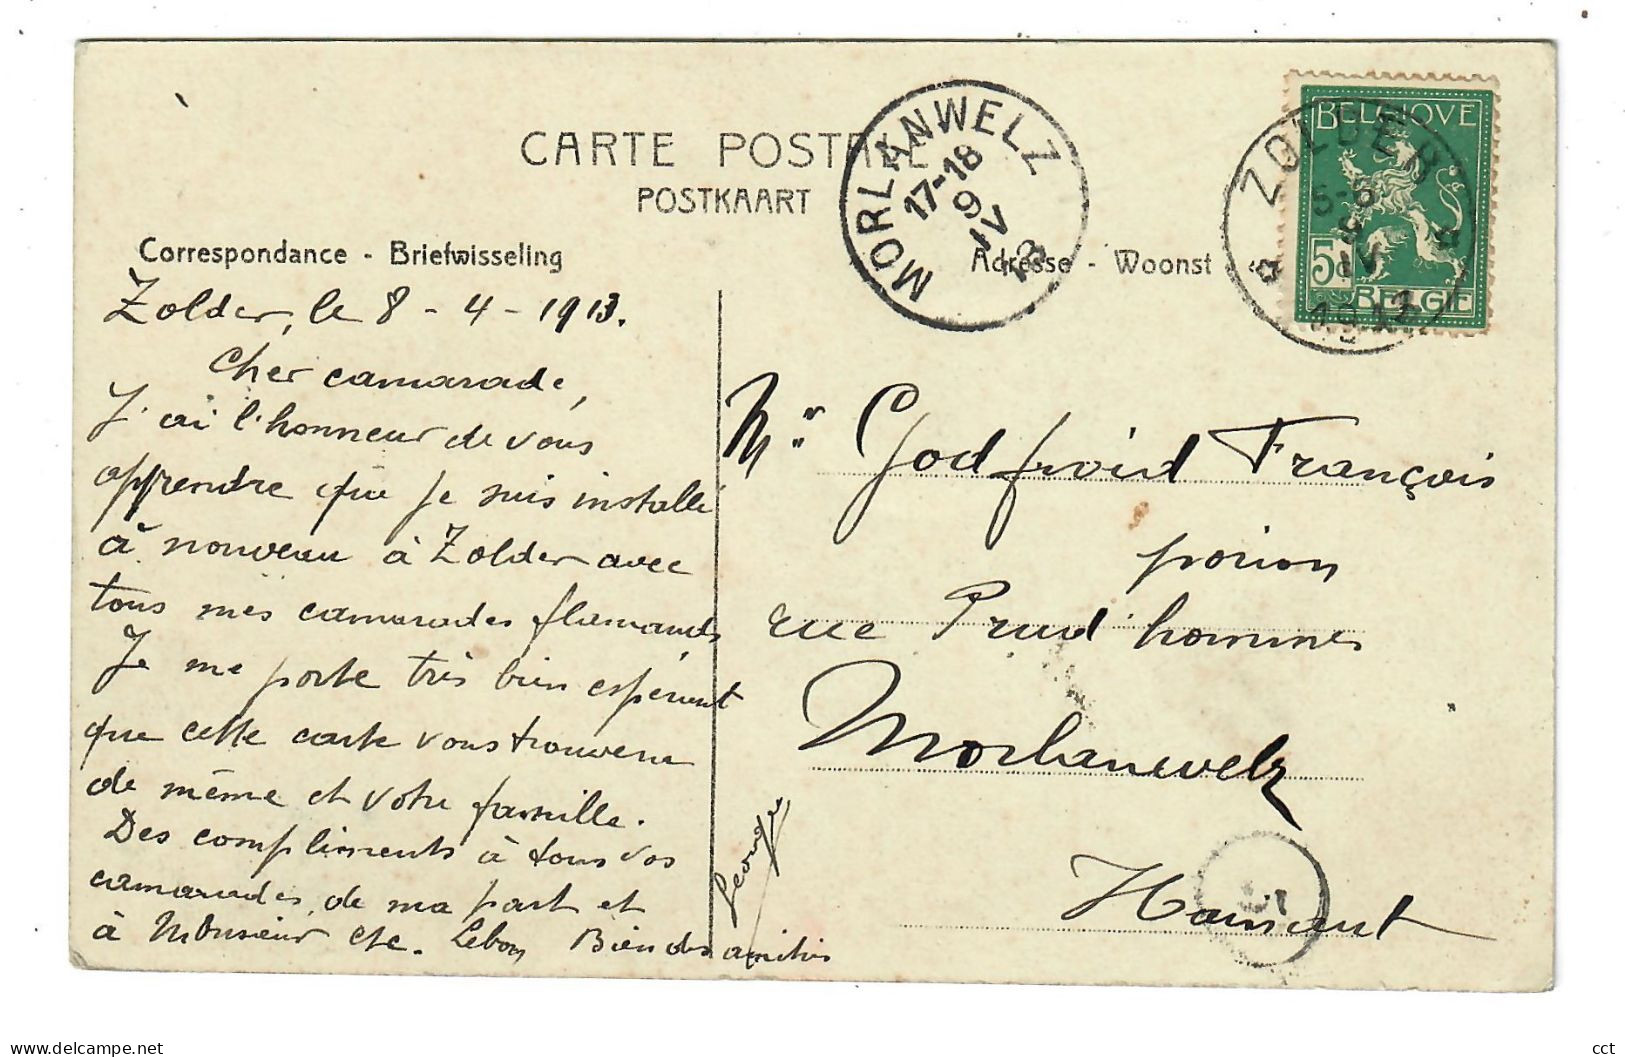 CARTE POSTALE
POSTKAART
Correspondance - Briefwisseling
Adresse - Woonst
MORLANWELZ
17-18
9
IV
13
BELGIQUE
5c
BELGIE
ZOLDER
5-6
IV
Zolder, le 8 - 4 - 1913.
Cher camarade,
J'ai l'honneur de vous
apprendre que je suis installé
à nouveau à Zolder avec
tous mes camarades flamands
Je me porte très bien espérant
que cette carte vous trouvera
de même et votre famille.
Des compliments à tous vos
camarades, de ma part et
à Monsieur Lebon Bien des amitiés
George
Mr Godfroid François
porion
rue Prud'hommes
Morlanwelz
Hainaut
https://www.delcampe.net
cct